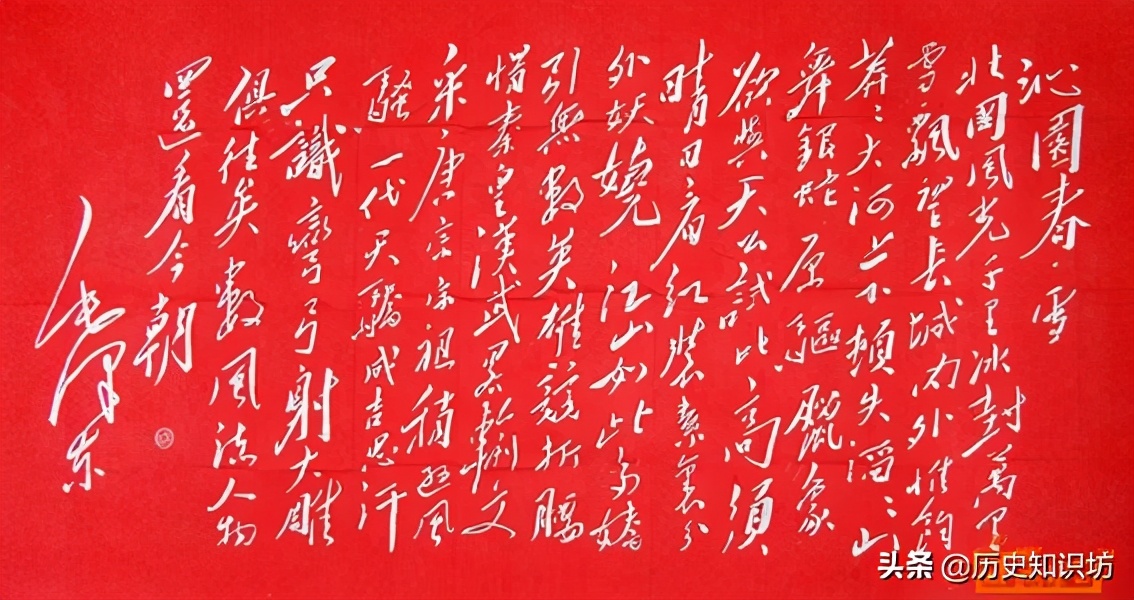 沁園春·雪
北國風光千里冰封萬里
雪飄望長城内外惟餘
莽〻大河上下頓失滔〻山
舞銀蛇原驅臘象
欲與天公試比高須
晴日看紅裝素裹分
外妖嬈江山如此多嬌
引無數英雄競折腰
惜秦皇漢武略輸文
采唐宗宋祖稍遜風
騷一代天驕成吉思汗
只識彎弓射大雕
俱往矣數風流人物
還看今朝
毛澤東
头条 @历史知识坊